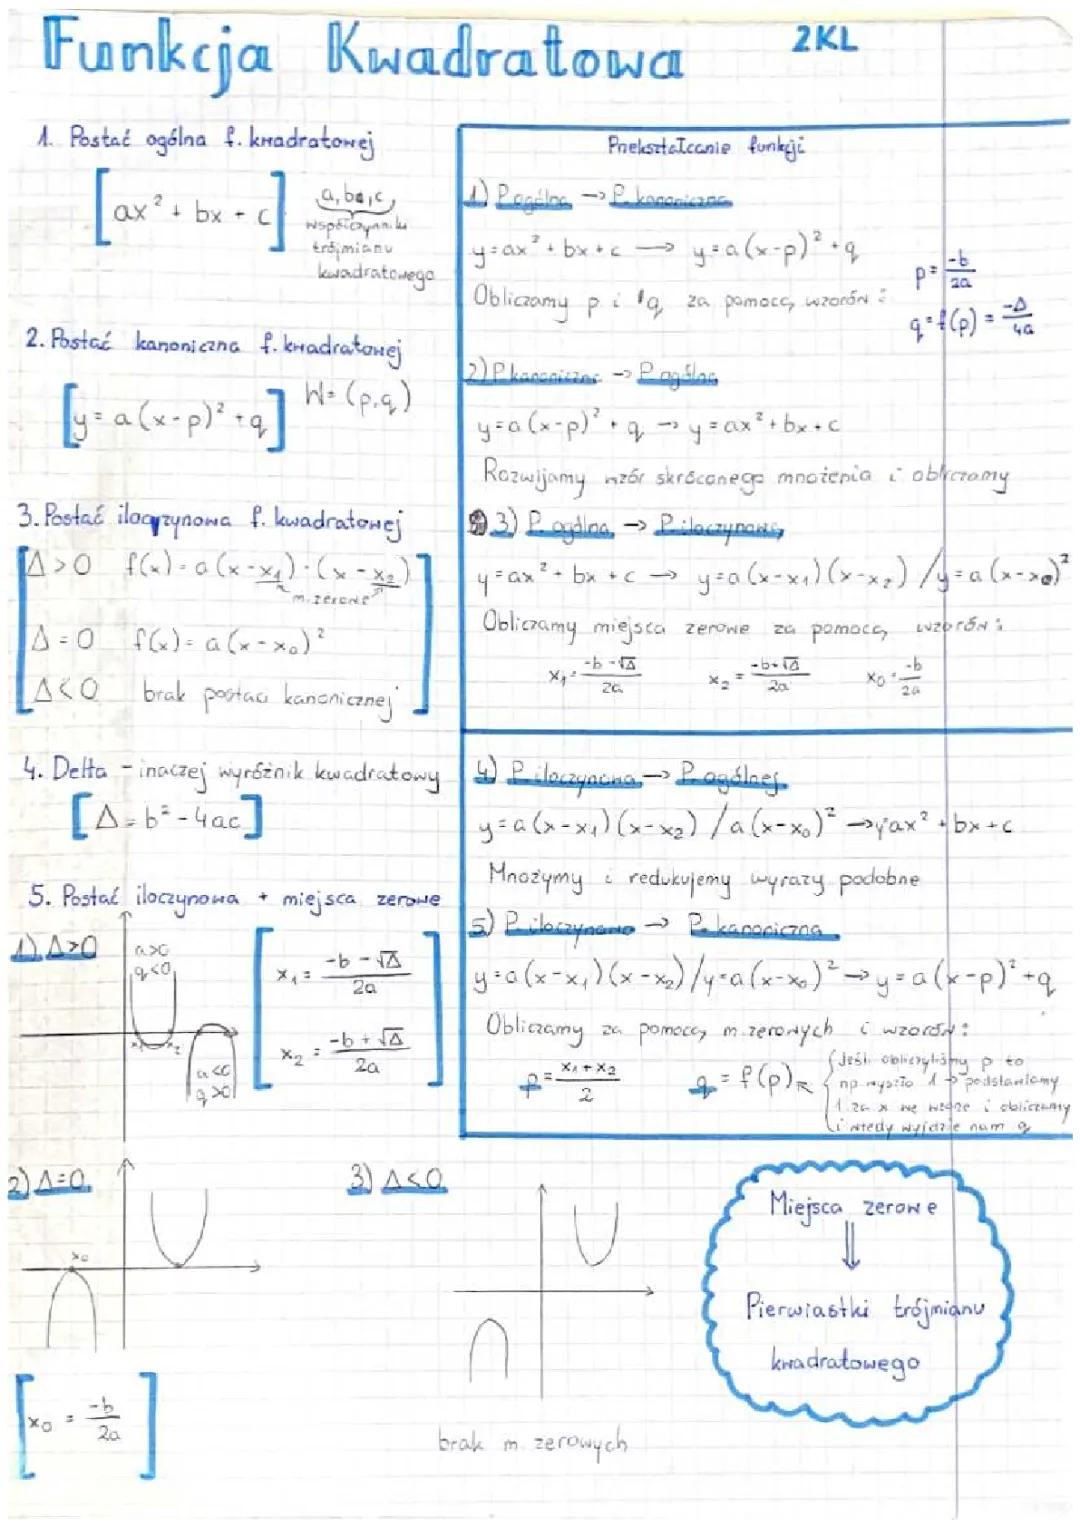 Funkcja Kwadratowa
2KL
1. Postać ogólna f. kwadratowej
[ax² + bx + c]
a, b, c,
współczynniki
trójmianu
kwadratowego
2. Postać kanoniczna f. kwadratowej
[y = a(x-p)² + q] W = (p,q)
3. Postać iloczynowa f. kwadratowej
Δ>0 f(x) = a(x-x₁)·(x-x₂)
m. zerowe
Δ=0 f(x) = a(x-x₀)²
Δ<0 brak postaci kanonicznej
4. Delta - inaczej wyróżnik kwadratowy
[Δ = b² - 4ac]
5. Postać iloczynowa + miejsca zerowe
1) Δ>0
a>0
q<0
x₁ x₂
a<0
q>0
x₁ = (-b - √Δ)/2a
x₂ = (-b + √Δ)/2a
2) Δ=0
x₀
[x₀ = -b/2a]
3) Δ<0
brak m. zerowych
Przekształcanie funkcji
1) P. ogólna → P. kanoniczna
y = ax² + bx + c → y = a(x-p)² + q
Obliczamy p i q za pomocą wzorów:
p = -b/2a
q = f(p) = -Δ/4a
2) P. kanoniczna → P. ogólna
y = a(x-p)² + q → y = ax² + bx + c
Rozwijamy wzór skróconego mnożenia i obliczamy
3) P. ogólna → P. iloczynowa
y = ax² + bx + c → y = a(x-x₁)(x-x₂) / y = a(x-x₀)²
Obliczamy miejsca zerowe za pomocą wzorów:
x₁ = (-b-√Δ)/2a x₂ = (-b+√Δ)/2a x₀ = -b/2a
4) P. iloczynowa → P. ogólnej
y = a(x-x₁)(x-x₂) / a(x-x₀)² → y ax² + bx + c
Mnożymy i redukujemy wyrazy podobne
5) P. iloczynowa → P. kanoniczna
y = a(x-x₁)(x-x₂) / y = a(x-x₀)² → y = a(x-p)² + q
Obliczamy za pomocą m. zerowych i wzorów:
p = (x₁+x₂)/2 q = f(p)
Jeśli obliczyliśmy p to
np wyszło 1 → podstawiamy
1 za x we wzorze i obliczamy
i wtedy wyjdzie nam q
Miejsca zerowe
⇓
Pierwiastki trójmianu
kwadratowego